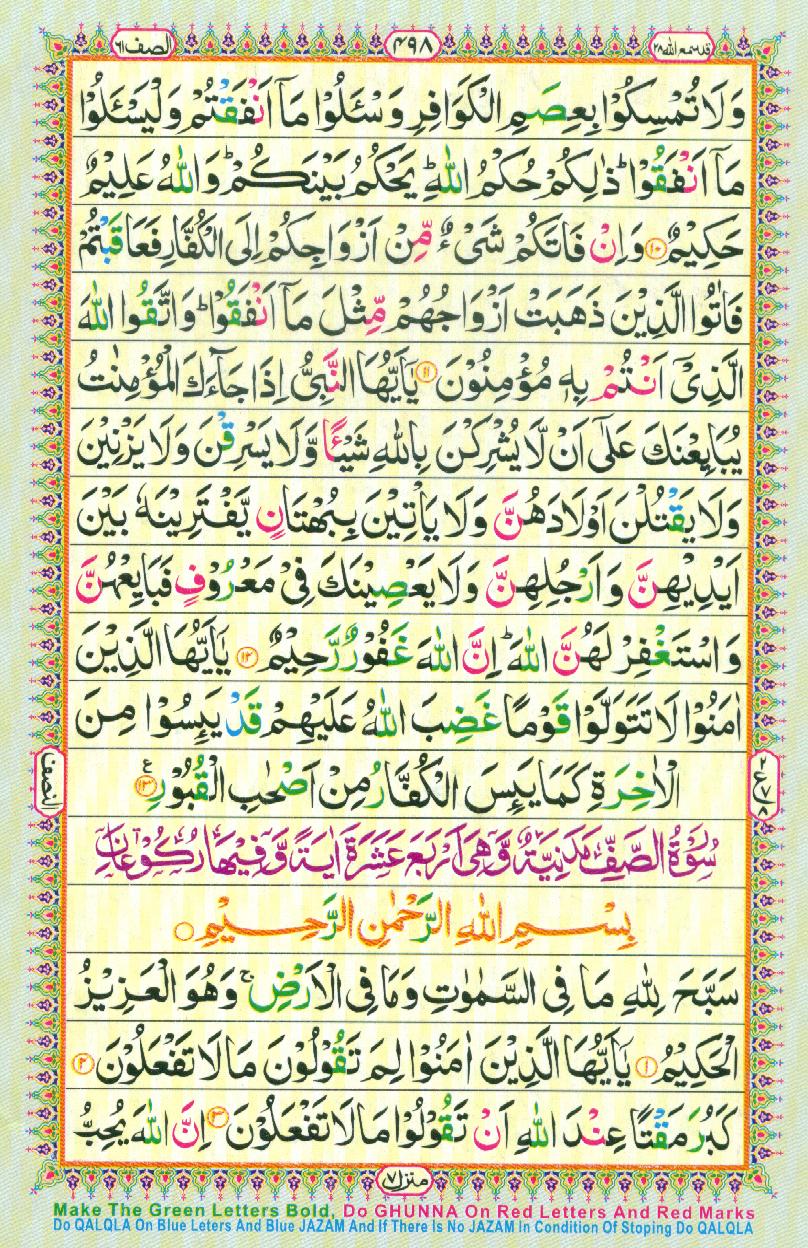 قدسمع الله ٢٨
٤٩٨
الصف ٦١
وَلَا تُمْسِكُوْا بِعِصَمِ الْكَوَافِرِ وَسْـَٔلُوْا مَاۤ اَنْفَقْتُمْ وَلْيَسْـَٔلُوْا
مَاۤ اَنْفَقُوْاؕ ذٰلِكُمْ حُكْمُ اللّٰهِؕ يَحْكُمُ بَيْنَكُمْؕ وَاللّٰهُ عَلِيْمٌ
حَكِيْمٌ ۝١٠ وَاِنْ فَاتَكُمْ شَىْءٌ مِّنْ اَزْوَاجِكُمْ اِلَى الْكُفَّارِ فَعَاقَبْتُمْ
فَاٰتُوا الَّذِيْنَ ذَهَبَتْ اَزْوَاجُهُمْ مِّثْلَ مَاۤ اَنْفَقُوْاؕ وَاتَّقُوا اللّٰهَ
الَّذِىْۤ اَنْتُمْ بِهٖ مُؤْمِنُوْنَ ۝١١ يٰۤاَيُّهَا النَّبِىُّ اِذَا جَآءَكَ الْمُؤْمِنٰتُ
يُبَايِعْنَكَ عَلٰۤى اَنْ لَّا يُشْرِكْنَ بِاللّٰهِ شَيْـًٔا وَّلَا يَسْرِقْنَ وَلَا يَزْنِيْنَ
وَلَا يَقْتُلْنَ اَوْلَادَهُنَّ وَلَا يَاْتِيْنَ بِبُهْتَانٍ يَّفْتَرِيْنَهٗ بَيْنَ
اَيْدِيْهِنَّ وَاَرْجُلِهِنَّ وَلَا يَعْصِيْنَكَ فِىْ مَعْرُوْفٍ فَبَايِعْهُنَّ
وَاسْتَغْفِرْ لَهُنَّ اللّٰهَؕ اِنَّ اللّٰهَ غَفُوْرٌ رَّحِيْمٌ ۝١٢ يٰۤاَيُّهَا الَّذِيْنَ
اٰمَنُوْا لَا تَتَوَلَّوْا قَوْمًا غَضِبَ اللّٰهُ عَلَيْهِمْ قَدْ يَىِٕسُوْا مِنَ
الْاٰخِرَةِ كَمَا يَىِٕسَ الْكُفَّارُ مِنْ اَصْحٰبِ الْقُبُوْرِ ۝١٣ ع
النصف
سُوْرَةُ الصَّفِّ مَدَنِيَّةٌ وَّهِىَ اَرْبَعَ عَشَرَةَ اٰيَةً وَّفِيْهَا رُكُوْعَانِ
بِسْمِ اللّٰهِ الرَّحْمٰنِ الرَّحِيْمِ
سَبَّحَ لِلّٰهِ مَا فِى السَّمٰوٰتِ وَمَا فِى الْاَرْضِۚ وَهُوَ الْعَزِيْزُ
الْحَكِيْمُ ۝١ يٰۤاَيُّهَا الَّذِيْنَ اٰمَنُوْا لِمَ تَقُوْلُوْنَ مَا لَا تَفْعَلُوْنَ ۝٢
كَبُرَ مَقْتًا عِنْدَ اللّٰهِ اَنْ تَقُوْلُوْا مَا لَا تَفْعَلُوْنَ ۝٣ اِنَّ اللّٰهَ يُحِبُّ
منزل ٧
Make The Green Letters Bold, Do GHUNNA On Red Letters And Red Marks
Do QALQLA On Blue Leters And Blue JAZAM And If There Is No JAZAM In Condition Of Stoping Do QALQLA